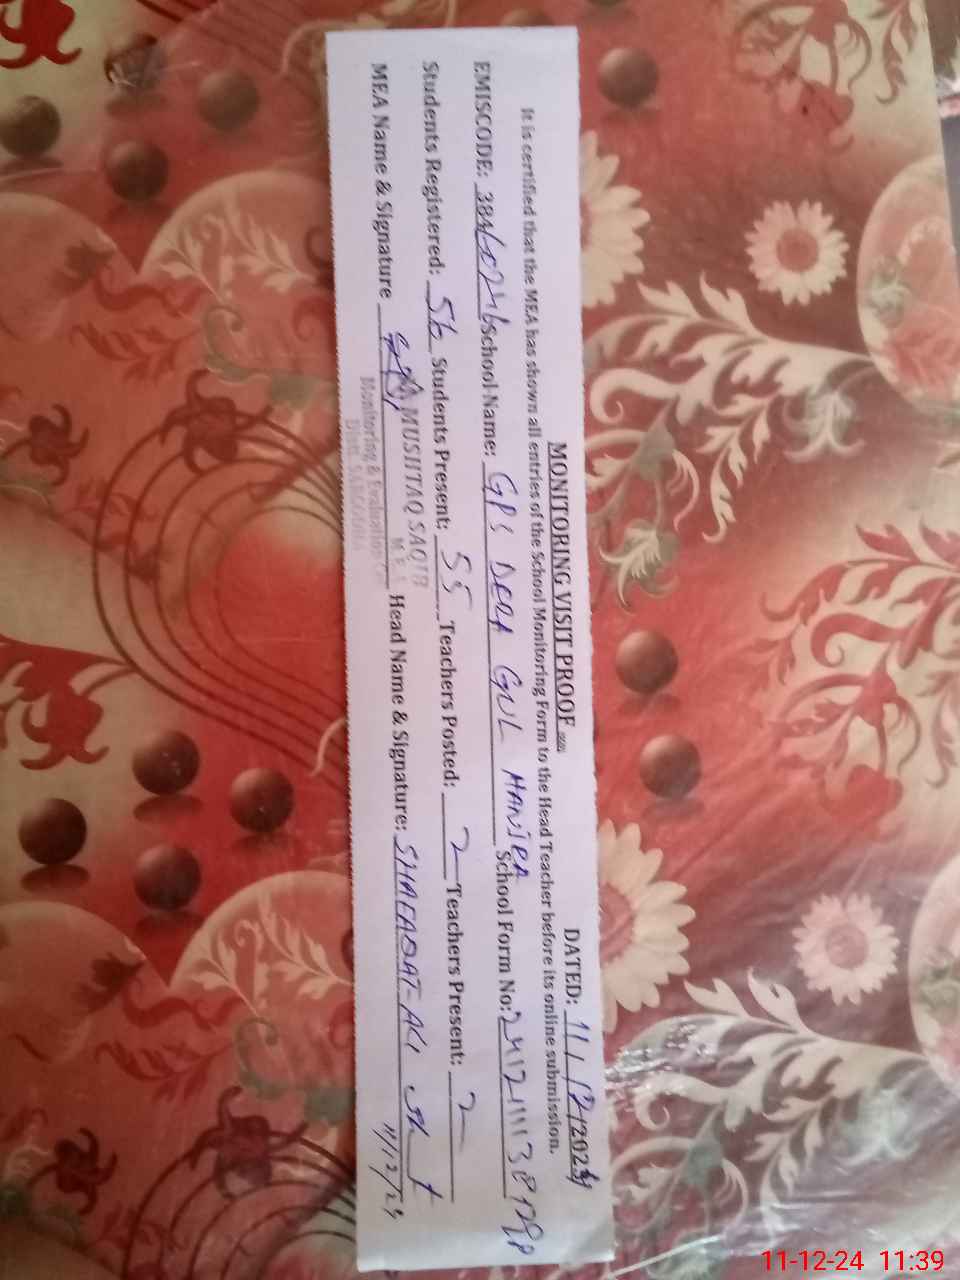 MONITORING VISIT PROOF
DATED: 11/12/2024
It is certified that the MEA has shown all entries of the School Monitoring Form to the Head Teacher before its online submission.
EMISCODE: School Name: GPS DERA GUL School Form No:
Students Registered: 56 Students Present: 55 Teachers Posted: 2 Teachers Present: 2
MEA Name & Signature MUSHTAQ SAQIB Head Name & Signature: SHAFAQAT ALI
11/12/24
Monitoring & Evaluation
Distt. SARGODHA
11-12-24 11:39